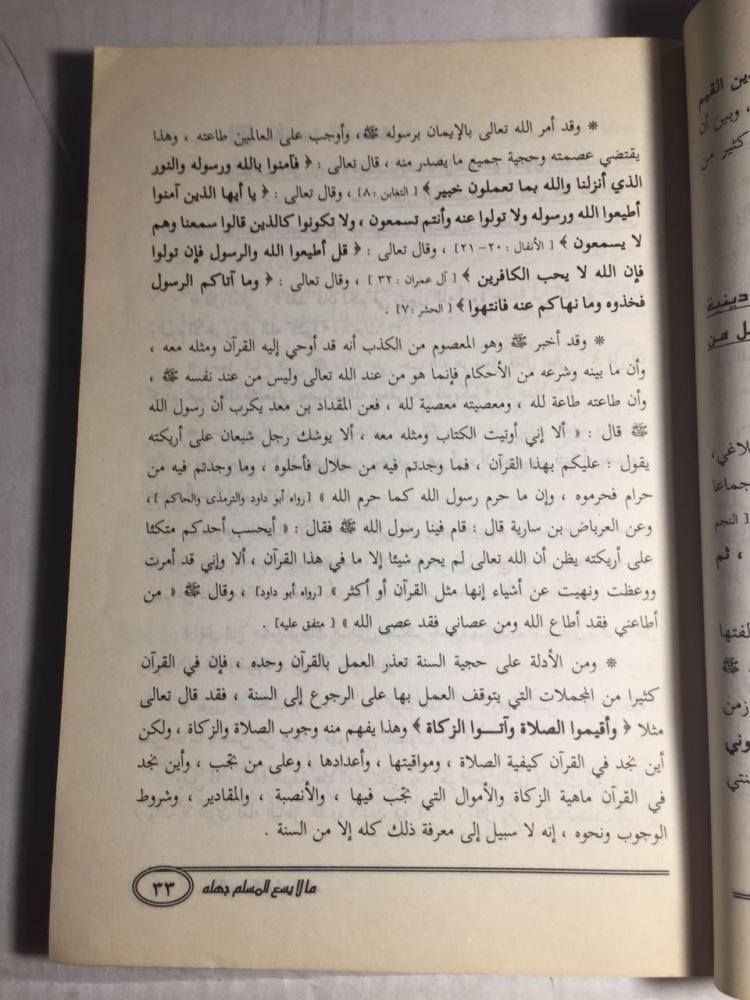 * وقد أمر الله تعالى بالإيمان برسوله ﷺ، وأوجب على العالمين طاعته ، وهذا
يقتضي عصمته وحجية جميع ما يصدر منه ، قال تعالى : ﴿ فآمنوا بالله ورسوله والنور
الذي أنزلنا والله بما تعملون خبير ﴾ [ التغابن : ٨] ، وقال تعالى : ﴿ يا أيها الذين آمنوا
أطيعوا الله ورسوله ولا تولوا عنه وأنتم تسمعون ، ولا تكونوا كالذين قالوا سمعنا وهم
لا يسمعون ﴾ [ الأنفال : ٢٠-٢١] ، وقال تعالى : ﴿ قل أطيعوا الله والرسول فإن تولوا
فإن الله لا يحب الكافرين ﴾ [ آل عمران : ٣٢ ] ، وقال تعالى : ﴿ وما آتاكم الرسول
فخذوه وما نهاكم عنه فانتهوا ﴾ [ الحشر : ٧] .
* وقد أخبر ﷺ وهو المعصوم من الكذب أنه قد أوحي إليه القرآن ومثله معه ،
وأن ما بينه وشرعه من الأحكام فإنما هو من عند الله تعالى وليس من عند نفسه ﷺ ،
وأن طاعته طاعة لله ، ومعصيته معصية لله ، فعن المقداد بن معد يكرب أن رسول الله
ﷺ قال : « ألا إني أوتيت الكتاب ومثله معه ، ألا يوشك رجل شبعان على أريكته
يقول : عليكم بهذا القرآن ، فما وجدتم فيه من حلال فأحلوه ، وما وجدتم فيه من
حرام فحرموه ، وإن ما حرم رسول الله كما حرم الله » [رواه أبو داود والترمذى والحاكم ]،
وعن العرباض بن سارية قال : قام فينا رسول الله ﷺ فقال : « أيحسب أحدكم متكئا
على أريكته يظن أن الله تعالى لم يحرم شيئا إلا ما في هذا القرآن ، ألا وإني قد أمرت
ووعظت ونهيت عن أشياء إنها مثل القرآن أو أكثر » [رواه أبو داود] ، وقال ﷺ « من
أطاعني فقد أطاع الله ومن عصاني فقد عصى الله » [ متفق عليه] .
* ومن الأدلة على حجية السنة تعذر العمل بالقرآن وحده ، فإن في القرآن
كثيرا من المجملات التي يتوقف العمل بها على الرجوع إلى السنة ، فقد قال تعالى
مثلا ﴿ وأقيموا الصلاة وآتـــوا الزكاة ﴾ وهذا يفهم منه وجوب الصلاة والزكاة ، ولكن
أين نجد في القرآن كيفية الصلاة ، ومواقيتها ، وأعدادها ، وعلى من تجب ، وأين نجد
في القرآن ماهية الزكاة والأموال التي تجب فيها ، والأنصبة ، والمقادير ، وشروط
الوجوب ونحوه ، إنه لا سبيل إلى معرفة ذلك كله إلا من السنة .
ما لا يسع المسلم جهله
٣٣
القيم
، وبين أن
كثير من
دينية
ل من
[ النجم
، ثم
ﷺ